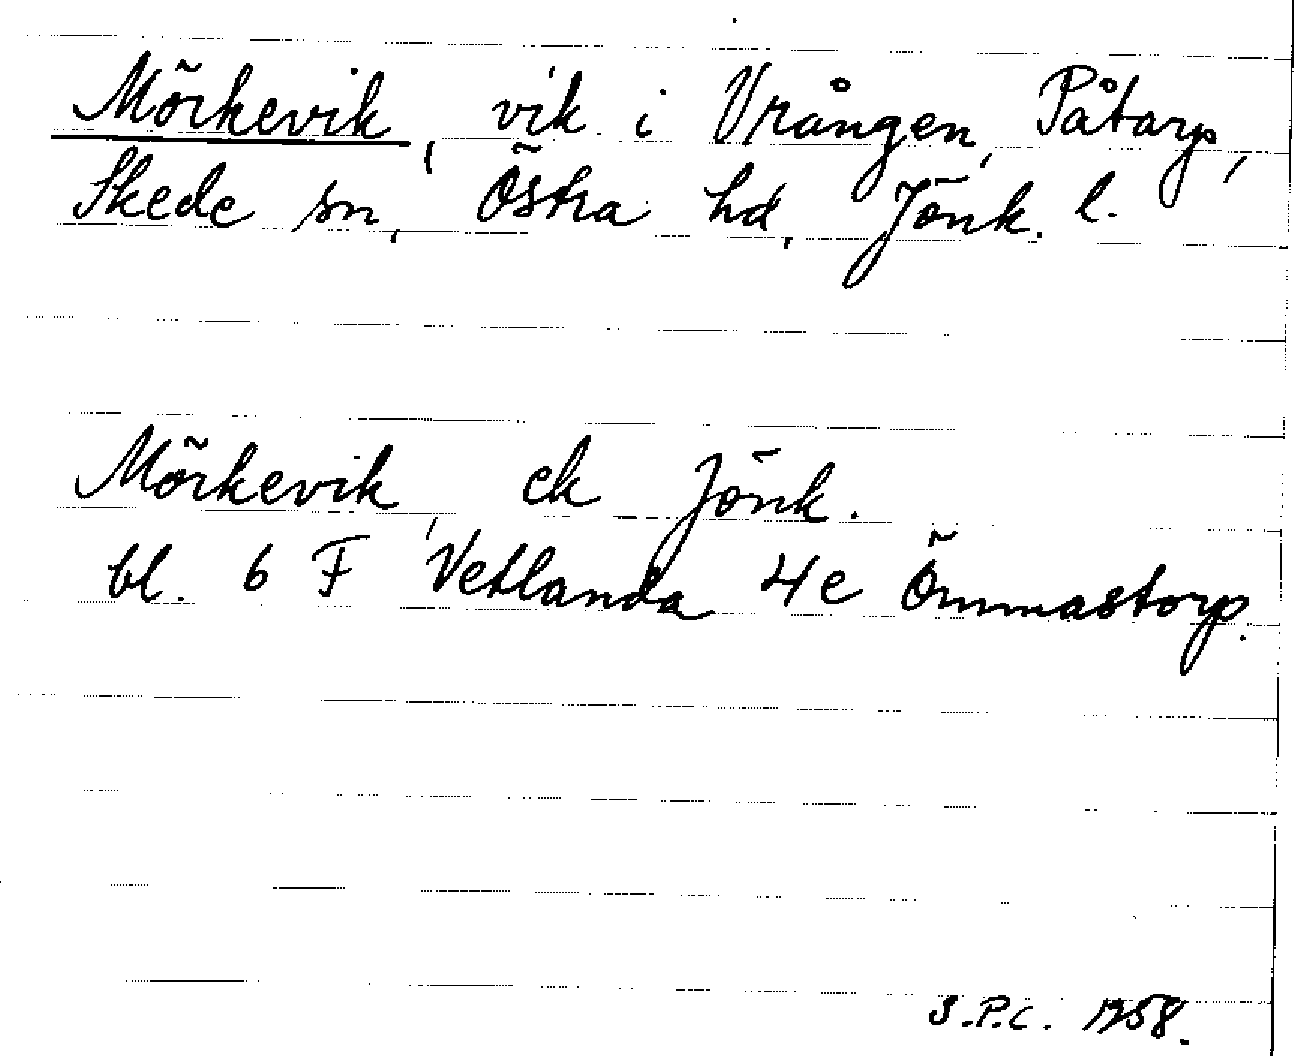 Mörkevik, vik i Vrången, Påtarp,
Skede sn, Östra hd, Jönk. l.
Mörkevik, ek Jönk.
bl. 6 F Vetlanda 4e Ömmastorp.
S.P.C. 1958.